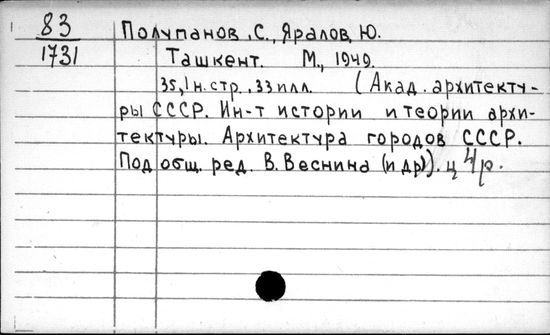 83
1731
Полупанов, С., Яралов, Ю.
Ташкент. М., 1949.
35, 1 н. стр., 33 илл. (Акад. архитекту-
ры СССР. Ин-т истории и теории архи-
тектуры. Архитектура городов СССР.
Под общ. ред. В. Веснина (и др)). ц 4 р.